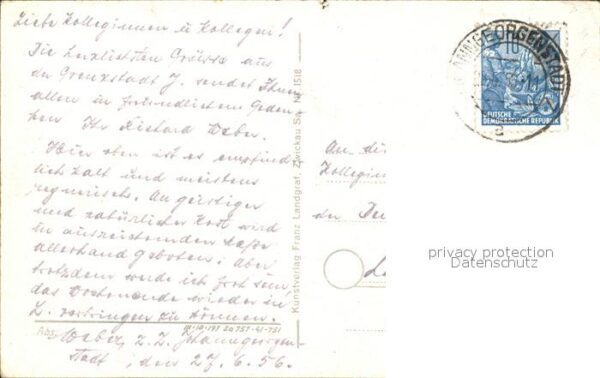 Liebe Kolleginnen u Kollegen!
Die herzlichsten Grüsse aus
der Grenzstadt J. sendet Ihnen
allen in freundlichem Geden-
ken Ihr Richard Weber.
Hier oben ist es empfind-
lich kalt und meistens
regnerisch. An geistiger
und natürlicher Kost wird
in ausreichendem Masse
allerhand geboten. Aber
trotzdem werde ich froh sein,
das Wochenende wieder in
L. verbringen zu können.
III-10-191 Za 757-41-751
Abs. Weber, z. Z. Johanngeorgen-
stadt, den 27. 6. 56.
Kunstverlag Franz Landgraf, Zwickau Sa. Nr. 1518
JOHANNGEORGENSTADT
10
DEUTSCHE
DEMOKRATISCHE REPUBLIK
a
An die
Kollegin
der
privacy protection
Datenschutz